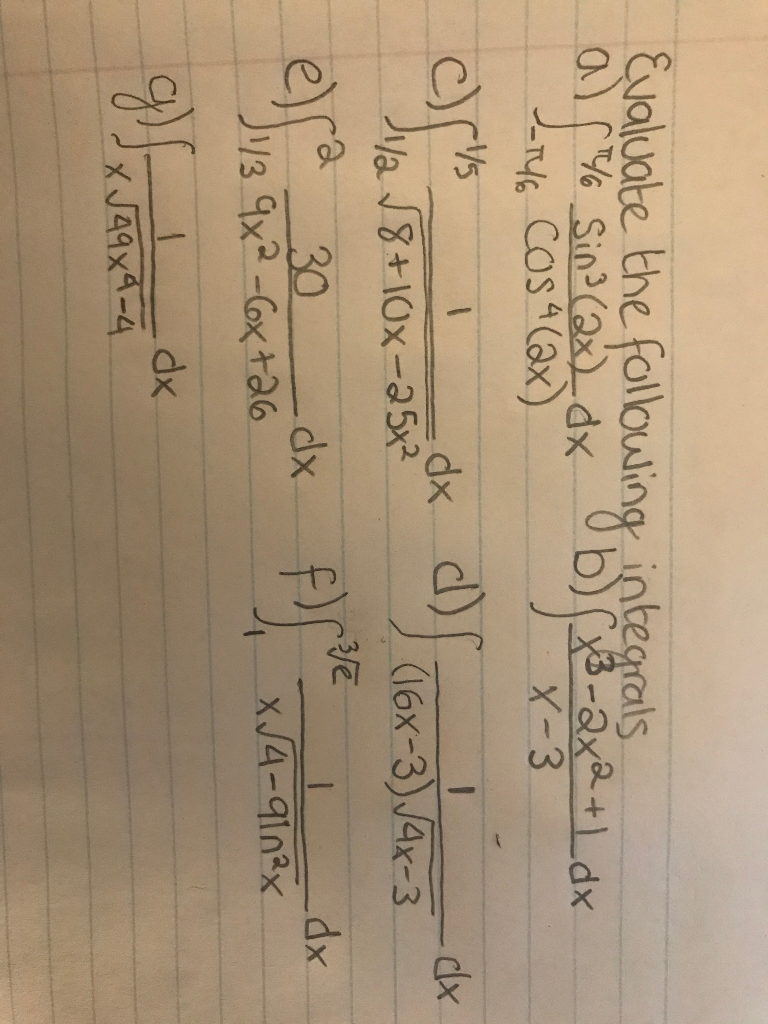 Evaluate the following integrals
a) ∫_{-π/6}^{π/6} sin³(2x)/cos⁴(2x) dx b) ∫ x³-2x²+1/x-3 dx
c) ∫_{1/2}^{1/5} 1/√(8+10x-25x²) dx d) ∫ 1/(16x-3)√(4x-3) dx
e) ∫_{1/3}^{2} 30/9x²-6x+26 dx f) ∫_{1}^{³√e} 1/x√(4-9ln²x) dx
g) ∫ 1/x√(49x⁴-4) dx